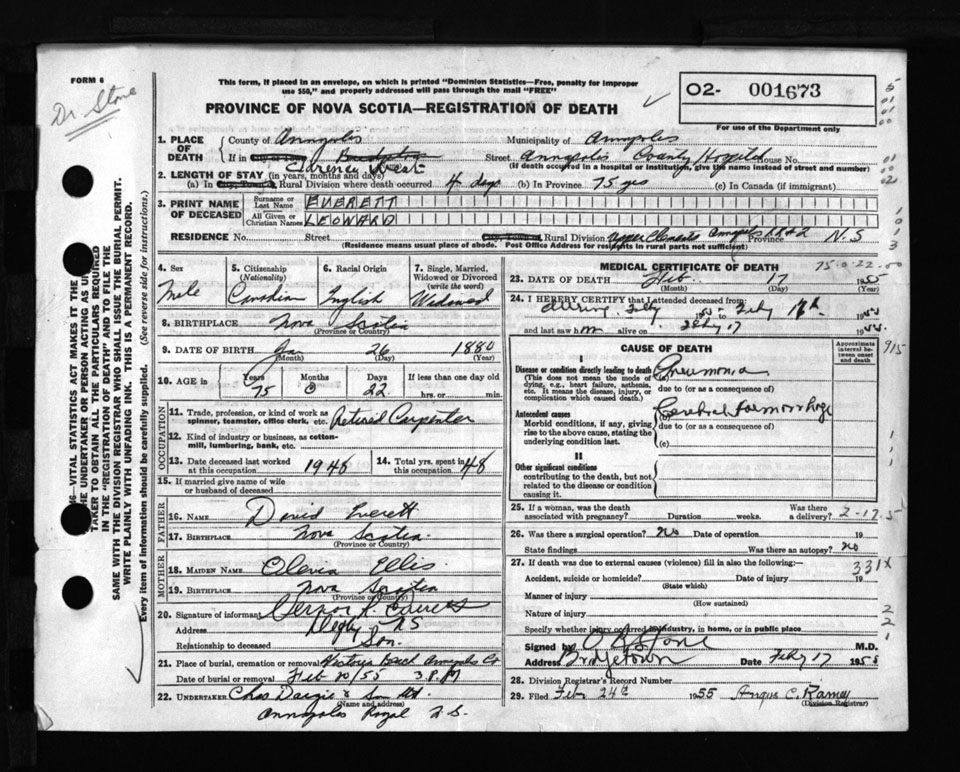 FORM 6
Dr. Stone
This form, if placed in an envelope, on which is printed "Dominion Statistics—Free, penalty for improper
use $50," and properly addressed will pass through the mail "FREE"
PROVINCE OF NOVA SCOTIA—REGISTRATION OF DEATH
O2- 001673
For use of the Department only
1. PLACE OF DEATH County of Annapolis Municipality of Annapolis
If in Bridgetown Street Annapolis County Hospital House No.
Clarence West (If death occurred in a hospital or institution, give its name instead of street and number)
2. LENGTH OF STAY (in years, months and days)
(a) In Rural Division where death occurred 4 days (b) In Province 75 yrs (c) In Canada (if immigrant)
3. PRINT NAME OF DECEASED Surname or Last Name EVERETT
All Given or Christian Names LEONARD
RESIDENCE No. Street Rural Division Upper Clements Annapolis RR#2 Province N.S
(Residence means usual place of abode. Post Office Address for residents in rural parts not sufficient)
4. Sex Male
5. Citizenship (Nationality) Canadian
6. Racial Origin English
7. Single, Married, Widowed or Divorced (write the word) Widowed
8. BIRTHPLACE Nova Scotia
(Province or Country)
9. DATE OF BIRTH Jan 26 1880
(Month) (Day) (Year)
10. AGE in Years 75 Months 0 Days 22 If less than one day old
hrs. or min.
OCCUPATION
11. Trade, profession, or kind of work as spinner, teamster, office clerk, etc. Retired Carpenter
12. Kind of industry or business, as cotton-mill, lumbering, bank, etc.
13. Date deceased last worked at this occupation 1948
14. Total yrs. spent in this occupation 48
15. If married give name of wife or husband of deceased
FATHER
16. NAME David Everett
17. BIRTHPLACE Nova Scotia
(Province or Country)
MOTHER
18. MAIDEN NAME Olevia Ellis
19. BIRTHPLACE Nova Scotia
(Province or Country)
20. Signature of informant Vernon R. Everett
Address Digby NS
Relationship to deceased Son
21. Place of burial, cremation or removal Victoria Beach Annapolis Co
Date of burial or removal Feb 20/55 3 P.M
22. UNDERTAKER Chas Dargie & Son Ltd.
(Name and address)
Annapolis Royal N.S.
MEDICAL CERTIFICATE OF DEATH
75-0-22-00
23. DATE OF DEATH Feb. 17 1955
(Month) (Day) (Year)
24. I HEREBY CERTIFY that I attended deceased from
1955 to Feby 17th 1955
and last saw him alive on Feby 17 1955
CAUSE OF DEATH
Approximate interval between onset and death
915
I
Disease or condition directly leading to death
(This does not mean the mode of dying, e.g., heart failure, asthenia, etc. It means the disease, injury, or complication which caused death.)
(a) Pneumonia
due to (or as a consequence of)
Antecedent causes
Morbid conditions, if any, giving rise to the above cause, stating the underlying condition last.
(b) Cerebral Haemorrhage
due to (or as a consequence of)
(c)
II
Other significant conditions
contributing to the death, but not related to the disease or condition causing it.
25. If a woman, was the death associated with pregnancy? Duration weeks. Was there a delivery? 2-17-5
26. Was there surgical operation? No Date of operation 19
State findings Was there an autopsy? No
27. If death was due to external causes (violence) fill in also the following:— 331X
Accident, suicide or homicide? Date of injury 19
(State which)
Manner of injury
(How sustained)
Nature of injury
Specify whether injury occurred in industry, in home, or in public place
Signed by O R Stone M.D.
Address Bridgetown Date Feby 17 1955
28. Division Registrar's Record Number
29. Filed Feb 24th 1955 Angus C. Ramey
(Division Registrar)
VITAL STATISTICS ACT MAKES IT THE
THE UNDERTAKER OR PERSON ACTING AS UN
TAKER TO OBTAIN ALL THE PARTICULARS REQUIRED
IN THE "REGISTRATION OF DEATH" AND TO FILE THE
SAME WITH THE DIVISION REGISTRAR WHO SHALL ISSUE THE BURIAL PERMIT.
WRITE PLAINLY WITH UNFADING INK. THIS IS A PERMANENT RECORD.
Every item of information should be carefully supplied. (See reverse side for instructions.)